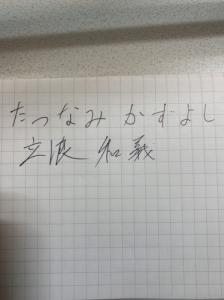 たつなみ かずよし
立浪 和義